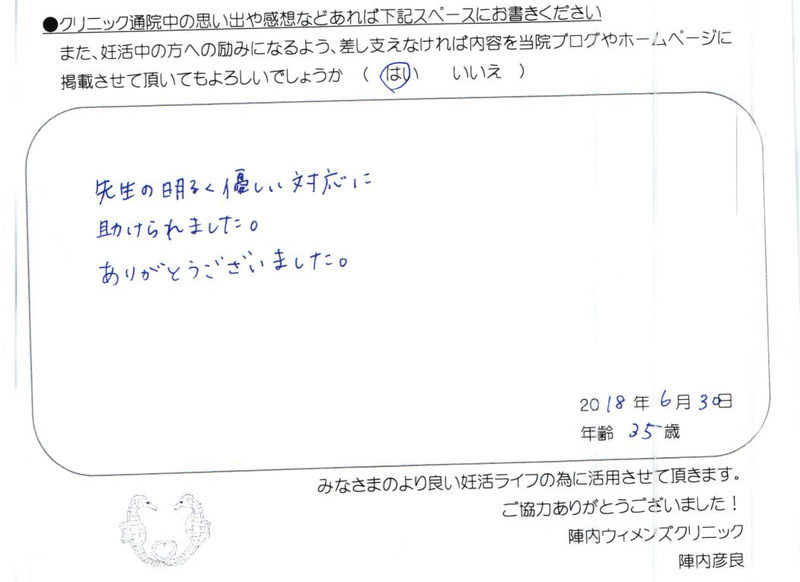 ●クリニック通院中の思い出や感想などあれば下記スペースにお書きください
また、妊活中の方への励みになるよう、差し支えなければ内容を当院ブログやホームページに
掲載させて頂いてもよろしいでしょうか （ はい いいえ ）
先生の明るく優しい対応に
助けられました。
ありがとうございました。
2018年6月30日
年齢 35歳
みなさまのより良い妊活ライフの為に活用させて頂きます。
ご協力ありがとうございました！
陣内ウィメンズクリニック
陣内彦良